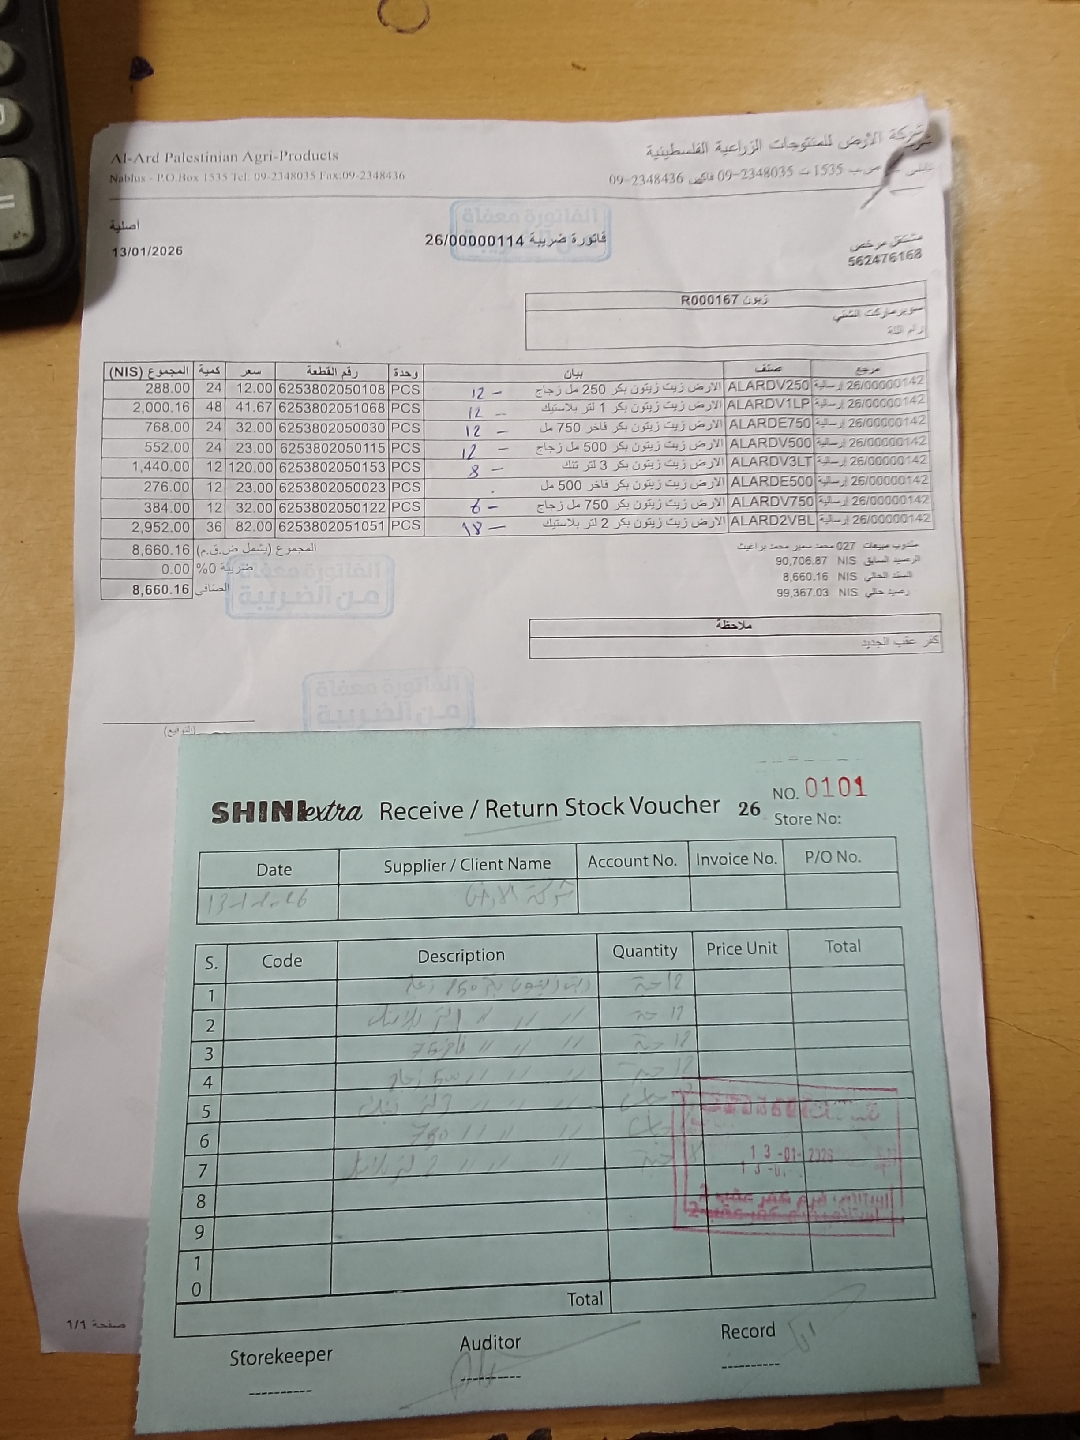 Al-Ard Palestinian Agri-Products
شركة الارض للمنتوجات الزراعية الفلسطينية
Nablus - P.O.Box 1535 Tel: 09-2348035 Fax:09-2348436
ص.ب 1535 ت 09-2348035 فاكس 09-2348436
أصلية
الفاتورة معفاة من الضريبة
فاتورة ضريبة 26/00000114
13/01/2026
مشتغل مرخص
562476168
زبون R000167
سوبرماركت الشني
رام الله
مرجع صنف بيان وحدة رقم القطعة سعر كمية المجموع (NIS)
26/00000142 إرسالية ALARDV250 الارض زيت زيتون بكر 250 مل زجاج 12 - PCS 6253802050108 12.00 24 288.00
26/00000142 إرسالية ALARDV1LP الارض زيت زيتون بكر 1 لتر بلاستيك 12 - PCS 6253802051068 41.67 48 2,000.16
26/00000142 إرسالية ALARDE750 الارض زيت زيتون بكر فاخر 750 مل 12 - PCS 6253802050030 32.00 24 768.00
26/00000142 إرسالية ALARDV500 الارض زيت زيتون بكر 500 مل زجاج 12 - PCS 6253802050115 23.00 24 552.00
26/00000142 إرسالية ALARDV3LT الارض زيت زيتون بكر 3 لتر تنك 8 - PCS 6253802050153 120.00 12 1,440.00
26/00000142 إرسالية ALARDE500 الارض زيت زيتون بكر فاخر 500 مل PCS 6253802050023 23.00 12 276.00
26/00000142 إرسالية ALARDV750 الارض زيت زيتون بكر 750 مل زجاج 6 - PCS 6253802050122 32.00 12 384.00
26/00000142 إرسالية ALARD2VBL الارض زيت زيتون بكر 2 لتر بلاستيك 18 - PCS 6253802051051 82.00 36 2,952.00
المجموع (يشمل ض.ق.م) 8,660.16
ضريبة 0% 0.00
الصافي 8,660.16
مندوب مبيعات 027 محمد سمير محمد براغيث
الرصيد السابق NIS 90,706.87
السند الحالي NIS 8,660.16
رصيد حالي NIS 99,367.03
الفاتورة معفاة من الضريبة
ملاحظة
كفر عقب الجديد
الفاتورة معفاة من الضريبة
(التوقيع)
SHINI extra Receive / Return Stock Voucher 26 NO. 0101
Store No:
Date Supplier / Client Name Account No. Invoice No. P/O No.
شركة الارض
S. Code Description Quantity Price Unit Total
1 12
2 12
3 12
4 12
5
6
7
8
9
10
13-01-2026
Total
Storekeeper Auditor Record
صفحة 1/1